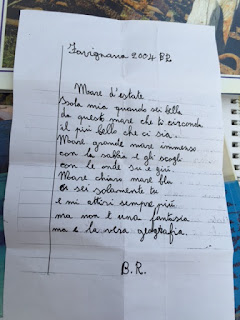 Favignana 2004 BR
Mare d'estate
Isola mia quando sei bella
da questo mare che ti circonda
il più bello che ci sia.
Mare grande mare immenso
con la sabbia e gli scogli
con le onde su e giù.
Mare chiaro mare blu
ci sei solamente tu
e mi attiri sempre più
ma non è una fantasia
ma è la vera geografia.
B.R.